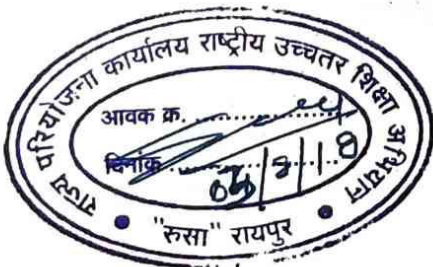 राज्य परियोजना कार्यालय राष्ट्रीय उच्चतर शिक्षा अभियान
आवक क्र.
दिनांक
"रुसा" रायपुर